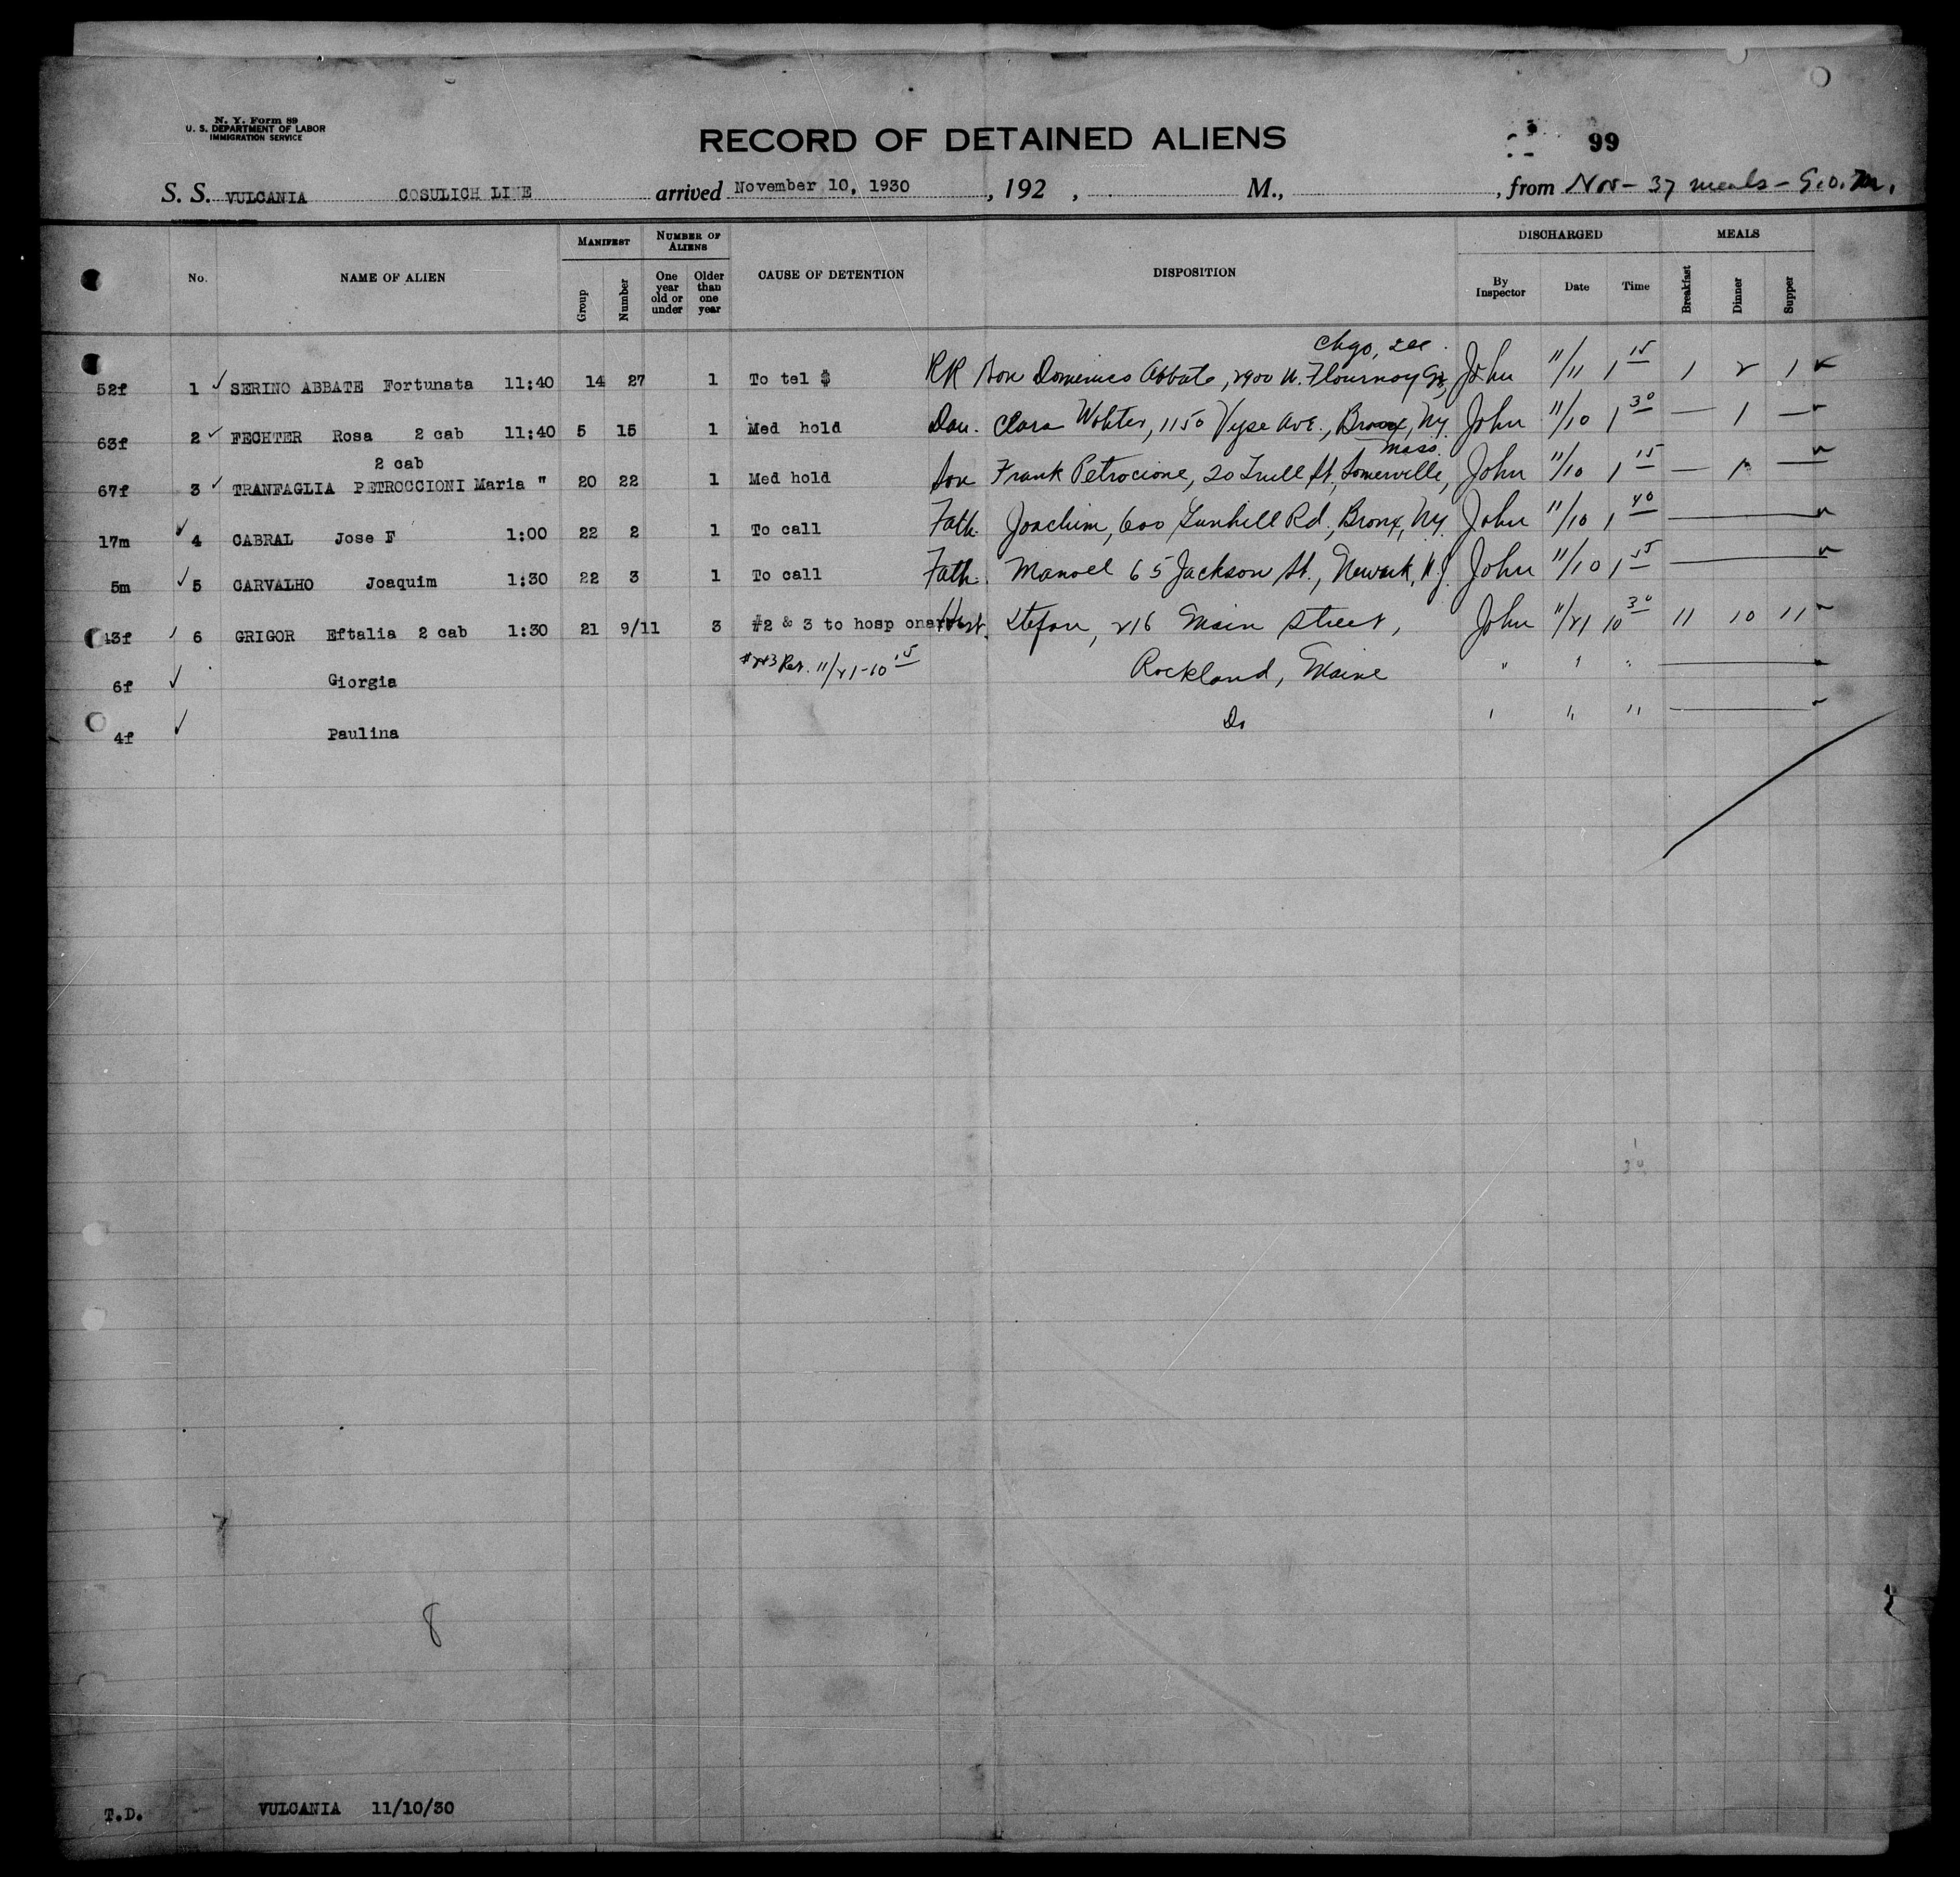 N. Y. Form 89
U. S. DEPARTMENT OF LABOR
IMMIGRATION SERVICE
RECORD OF DETAINED ALIENS
99
S. S. VULCANIA COSULICH LINE arrived November 10, 1930, 192 , M., , from Nov- 37 meals - G.O.M.
No. NAME OF ALIEN MANIFEST Group Number NUMBER OF ALIENS One year old or under Older than one year CAUSE OF DETENTION DISPOSITION DISCHARGED By Inspector Date Time MEALS Breakfast Dinner Supper
Chgo, Ill.
52f 1 ✓ SERINO ABBATE Fortunata 11:40 14 27 1 To tel $ RR Son Domenico Abbate, 2900 W. Flournoy St, John 11/11 1 15 1 2 1 ✓
63f 2 ✓ FECHTER Rosa 2 cab 11:40 5 15 1 Med hold Dau. Clara Wohter, 1150 Vyse Ave., Bronx, NY John 11/10 1 30 — 1 —
2 cab Mass.
67f 3 ✓ TRANFAGLIA PETROCCIONI Maria " 20 22 1 Med hold Son Frank Petrocione, 20 Trull St, Somerville, John 11/10 1 15 — 1 —
17m ✓ 4 CABRAL Jose F 1:00 22 2 1 To call Fath. Joachim, 600 Gunhill Rd, Bronx, NY. John 11/10 1 40
5m ✓ 5 CARVALHO Joaquim 1:30 22 3 1 To call Fath. Manoel 65 Jackson St., Newark, N.J. John 11/10 1 55
43f ✓ 6 GRIGOR Eftalia 2 cab 1:30 21 9/11 3 #2 & 3 to hosp on arr Husb. Stefan, 216 Main Street, John 11/21 10 30 11 10 11
6f ✓ Giorgia #2&3 Rer. 11/21-10 15 Rockland, Maine " " "
4f ✓ Paulina Do " " "
8
T.D. VULCANIA 11/10/30